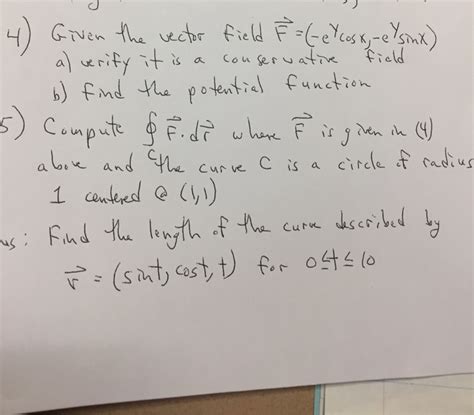 4) Given the vector field F⃗ = (-e^y cos x, -e^y sin x)
a) verify it is a conservative field
b) find the potential function
5) Compute ∮_C F⃗·dr⃗ where F⃗ is given in (4)
above and the curve C is a circle of radius
1 centered @ (1,1)
us: Find the length of the curve described by
r⃗ = (sin t, cos t, t) for 0≤t≤10